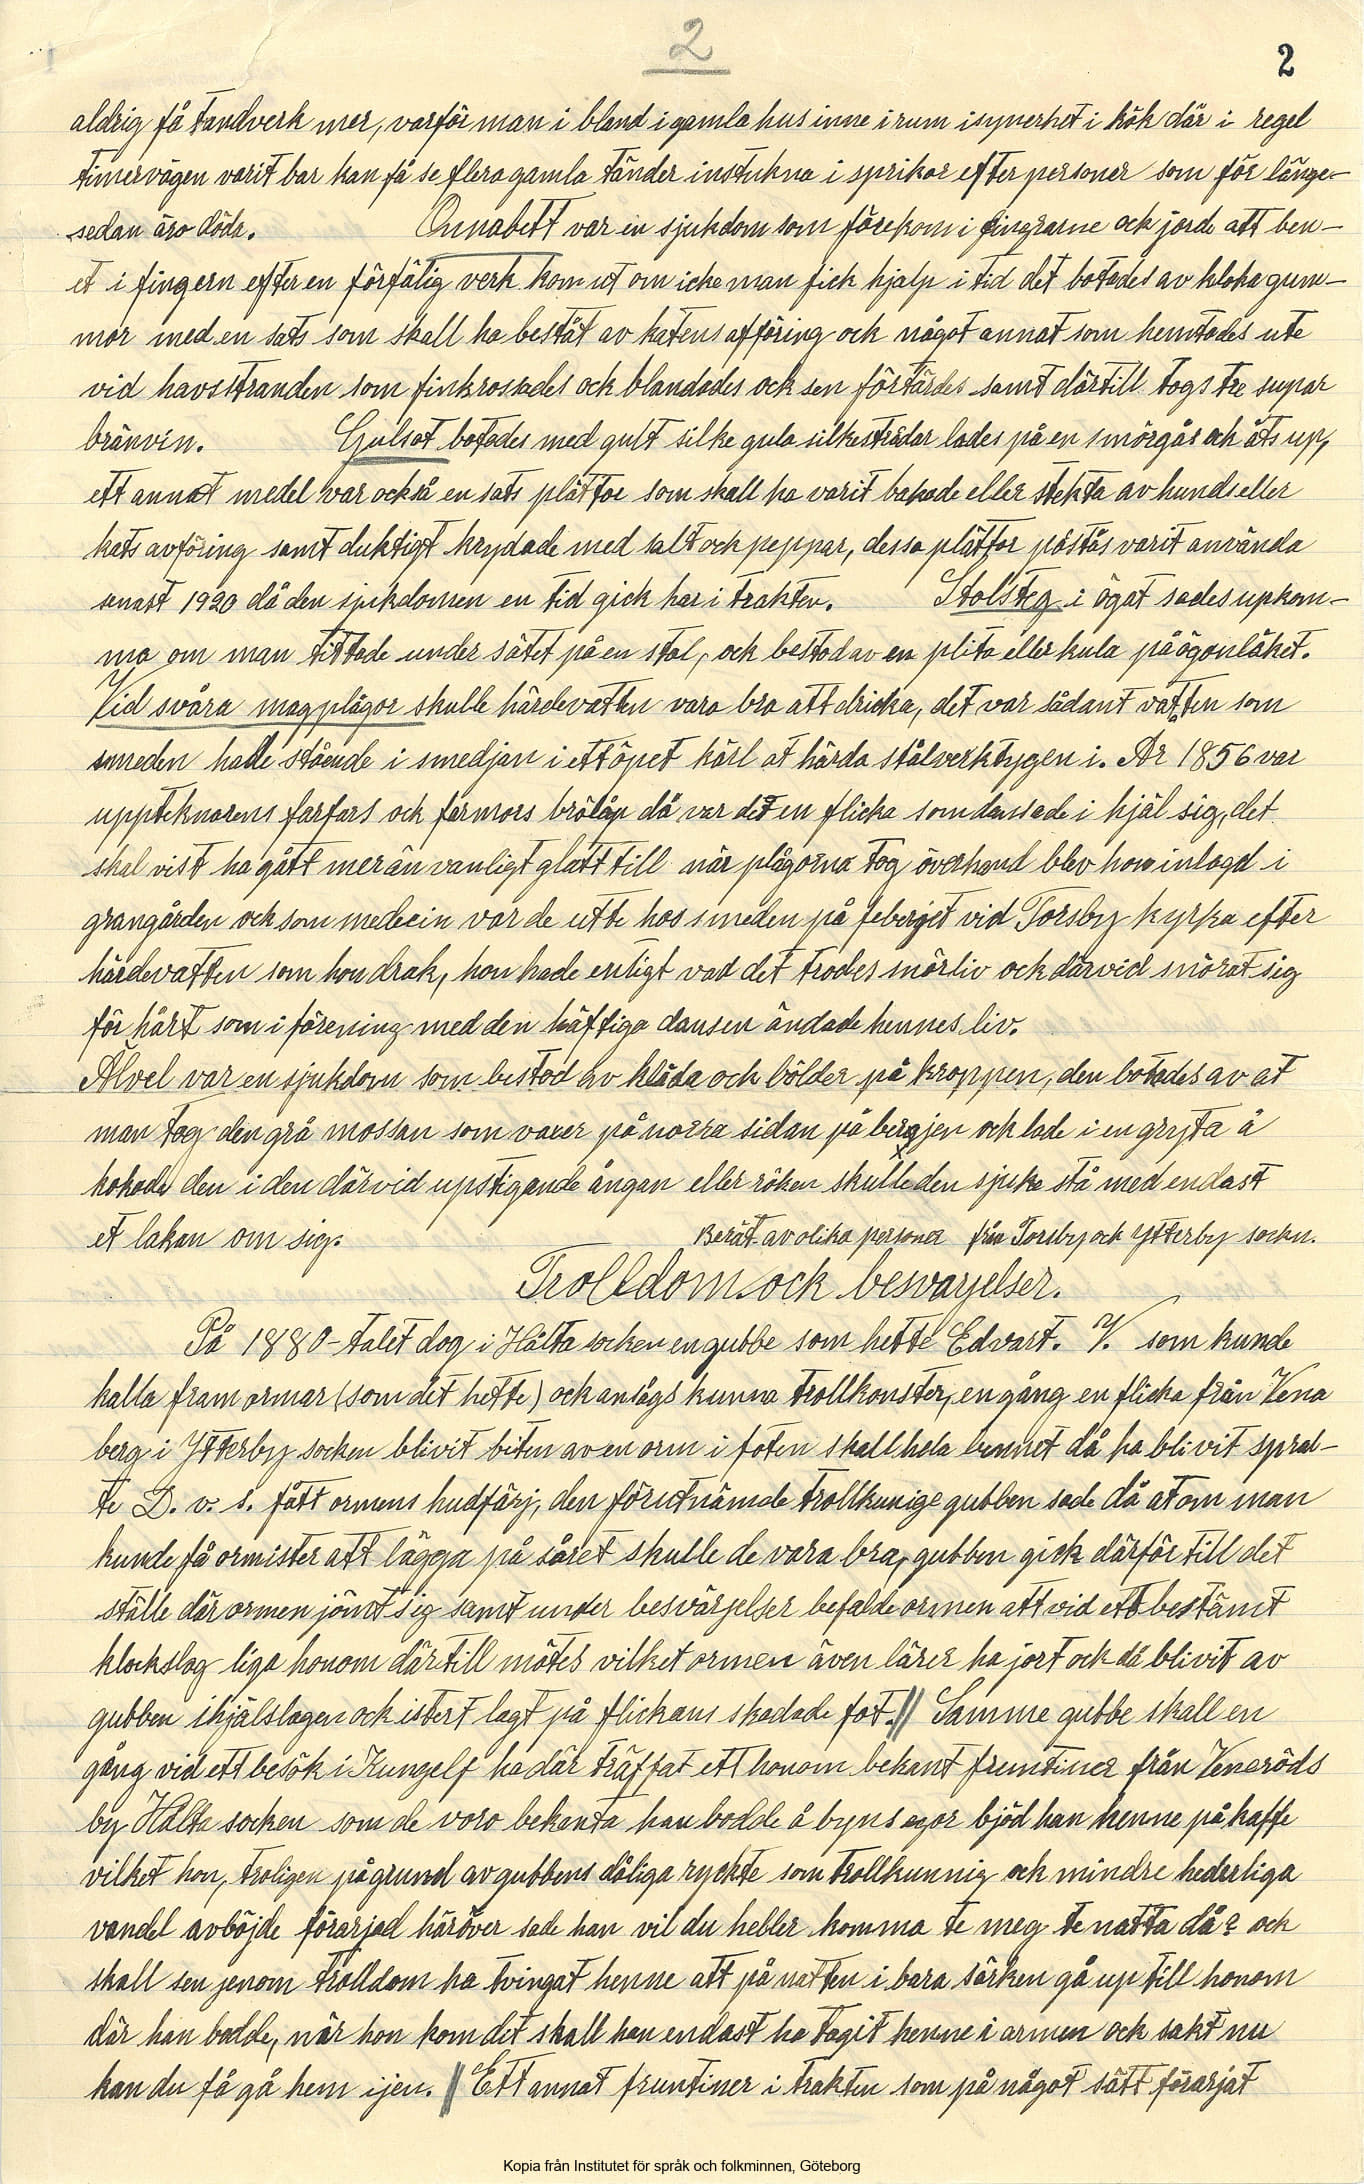 2
2
aldrig få tandverk mer, varför man i bland i gamla hus inne i rum isynerhet i kök där i regel
timervägen varit bar kan få se flera gamla tänder instukna i sprikor efter personer som för länge-
sedan äro döda. Onnabett var en sjukdom som förekom i fingrarne ock jorde att ben-
et i fingern efter en förfälig verk kom ut om icke man fick hjalp i tid det botades av kloka gum-
mor med en sats som skall ha bestät av katens afföring ock något annat som hemtades ute
vid havsstranden som finkrossades ock blandades ock sen förtärdes samt därtill togs tre supar
bränvin. Gulsot botades med gult silke gula silkestrådar lades på en smörgås ock åts up,
ett annat medel var också en sats plättor som skall ha varit bakade eller stekta av hunds eller
kats avföring samt duktigt krydade med salt ock peppar, dessa plättor påstås varit använda
senast 1920 då den sjukdomen en tid gick har i trakten. Stolsteg i ögat sades upkom-
ma om man tittade under sätet på en stol, ock bestod av en plita eller kula på ögonläket.
Vid svåra magplågor skulle härdevatten vara bra att dricka, det var sådant vatten som
smeden hade stående i smedjan i ett öpet kärl at härda stålverktygen i. År 1856 var
uppteknarens farfars ock farmors brölåp då var det en flicka som dansade i hjäl sig, det
skal vist ha gått mer än vanligt glatt till när plågorna tog överhand blev hon inlagd i
grangården ock som medecin var de utte hos smeden på feberget vid Torsby kyrka efter
härdevatten som hon drak, hon hade enligt vad det trodes snörliv ock därvid snörat sig
för hårt som i förening med den häftiga dansen ändade hennes liv.
Älvel var en sjukdom som bestod av klåda och bölder på kroppen, den botades av at
man tog den grå mossan som vaxer på norra sidan på bergjen ock lade i en gryta å
kokade den i den därvid upstigande ångan eller röken skulle den sjuke stå med endast
et lakan om sig. Berät av olika personer från Torsby ock Ytterby sockn.
Trolldom ock besvarjelser.
På 1880-talet dog i Hålta socken en gubbe som hette Edvart. V. som kunde
kalla fram ormar (som det hette) ock ansågs kunna trollkonster, en gång en flicka från Vena
berg i Ytterby socken blivit biten av en orm i foten skall hela bennet då ha blivit spral-
te D. v. s. fått ormens hudfärj, den förutnämde trollkunige gubben sade då at om man
kunde få ormister att lägga på såret skulle de vara bra, gubben gick därför till det
ställe där ormen jömt sig samt under besvärjelser befalde ormen att vid ett bestämt
klockslag liga honom därtill mötes vilket ormen även lärer ha jort ock då blivit av
gubben ihjälslagen ock istert lagt på flickans skadade fot.// Samme gubbe skall en
gång vid ett besök i Kungelf ha där träffat ett honom bekant fruntimer från Veneröds
by Hålta socken som de voro bekanta han bodde å byns egor bjöd han henne på kaffe
vilket hon, troligen på grund av gubbens dåliga ryckte som trollkunnig ock mindre hederliga
vandel avböjde förarjad häröver sade han vil du hebler komma te meg te natta då? ock
skall sen jenom trolldom ha tvingat henne att på natten i bara särken gå up till honom
där han bodde, när hon kom det skall han endast ha tagit henne i armen ock sakt nu
kan du få gå hem ijen. // Ett annat fruntimer i trakten som på något sätt förarjat
Kopia från Institutet för språk och folkminnen, Göteborg